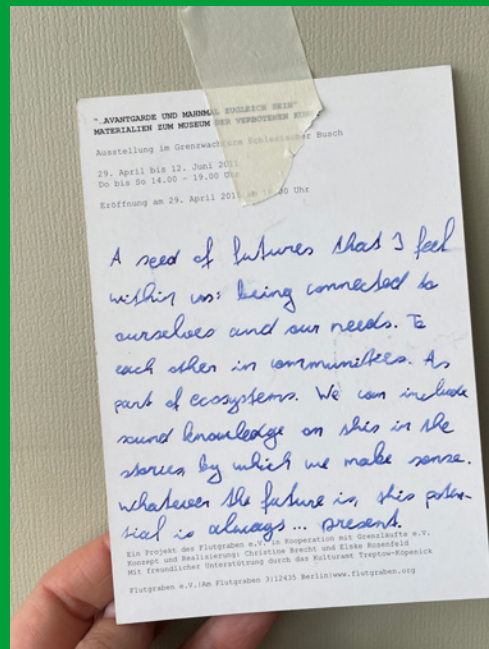 "…AVANTGARDE UND MAHNMAL ZUGLEICH SEIN"
MATERIALIEN ZUM MUSEUM DER VERBOTENEN KUNST
Ausstellung im Grenzwachturm Schlesischer Busch
29. April bis 12. Juni 2011
Do bis So 14.00 - 19.00 Uhr
Eröffnung am 29. April 2011 ab Uhr
A seed of futures that I feel
within us: being connected to
ourselves and our needs. To
each other in communities. As
part of ecosystems. We can include
sound knowledge on this in the
stories by which we make sense.
Whatever the future is, this poten-
tial is always... present.
Ein Projekt des Flutgraben e.V. in Kooperation mit Grenzläufte e.V.
Konzept und Realisierung: Christine Brecht und Elske Rosenfeld
Mit freundlicher Unterstützung durch das Kulturamt Treptow-Köpenick
Flutgraben e.V.|Am Flutgraben 3|12435 Berlin|www.flutgraben.org